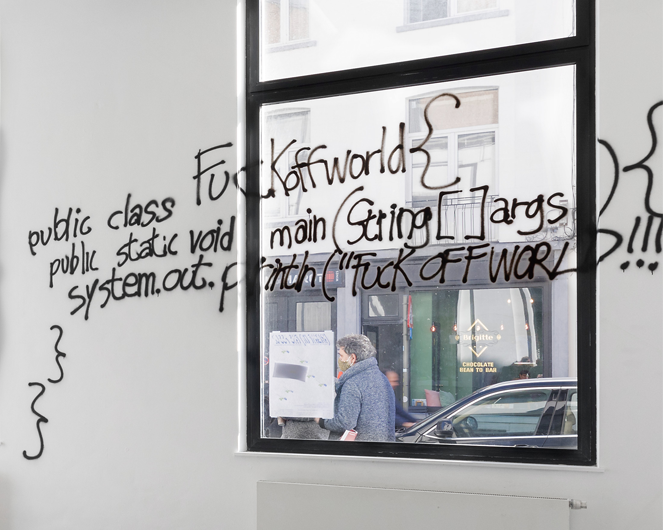 public class FuckOffworld{
public static void main(String[]args){
system.out.println("FUCK OFF WORLD!!!
}
}
Brigitte
CHOCOLATE
BEAN TO BAR